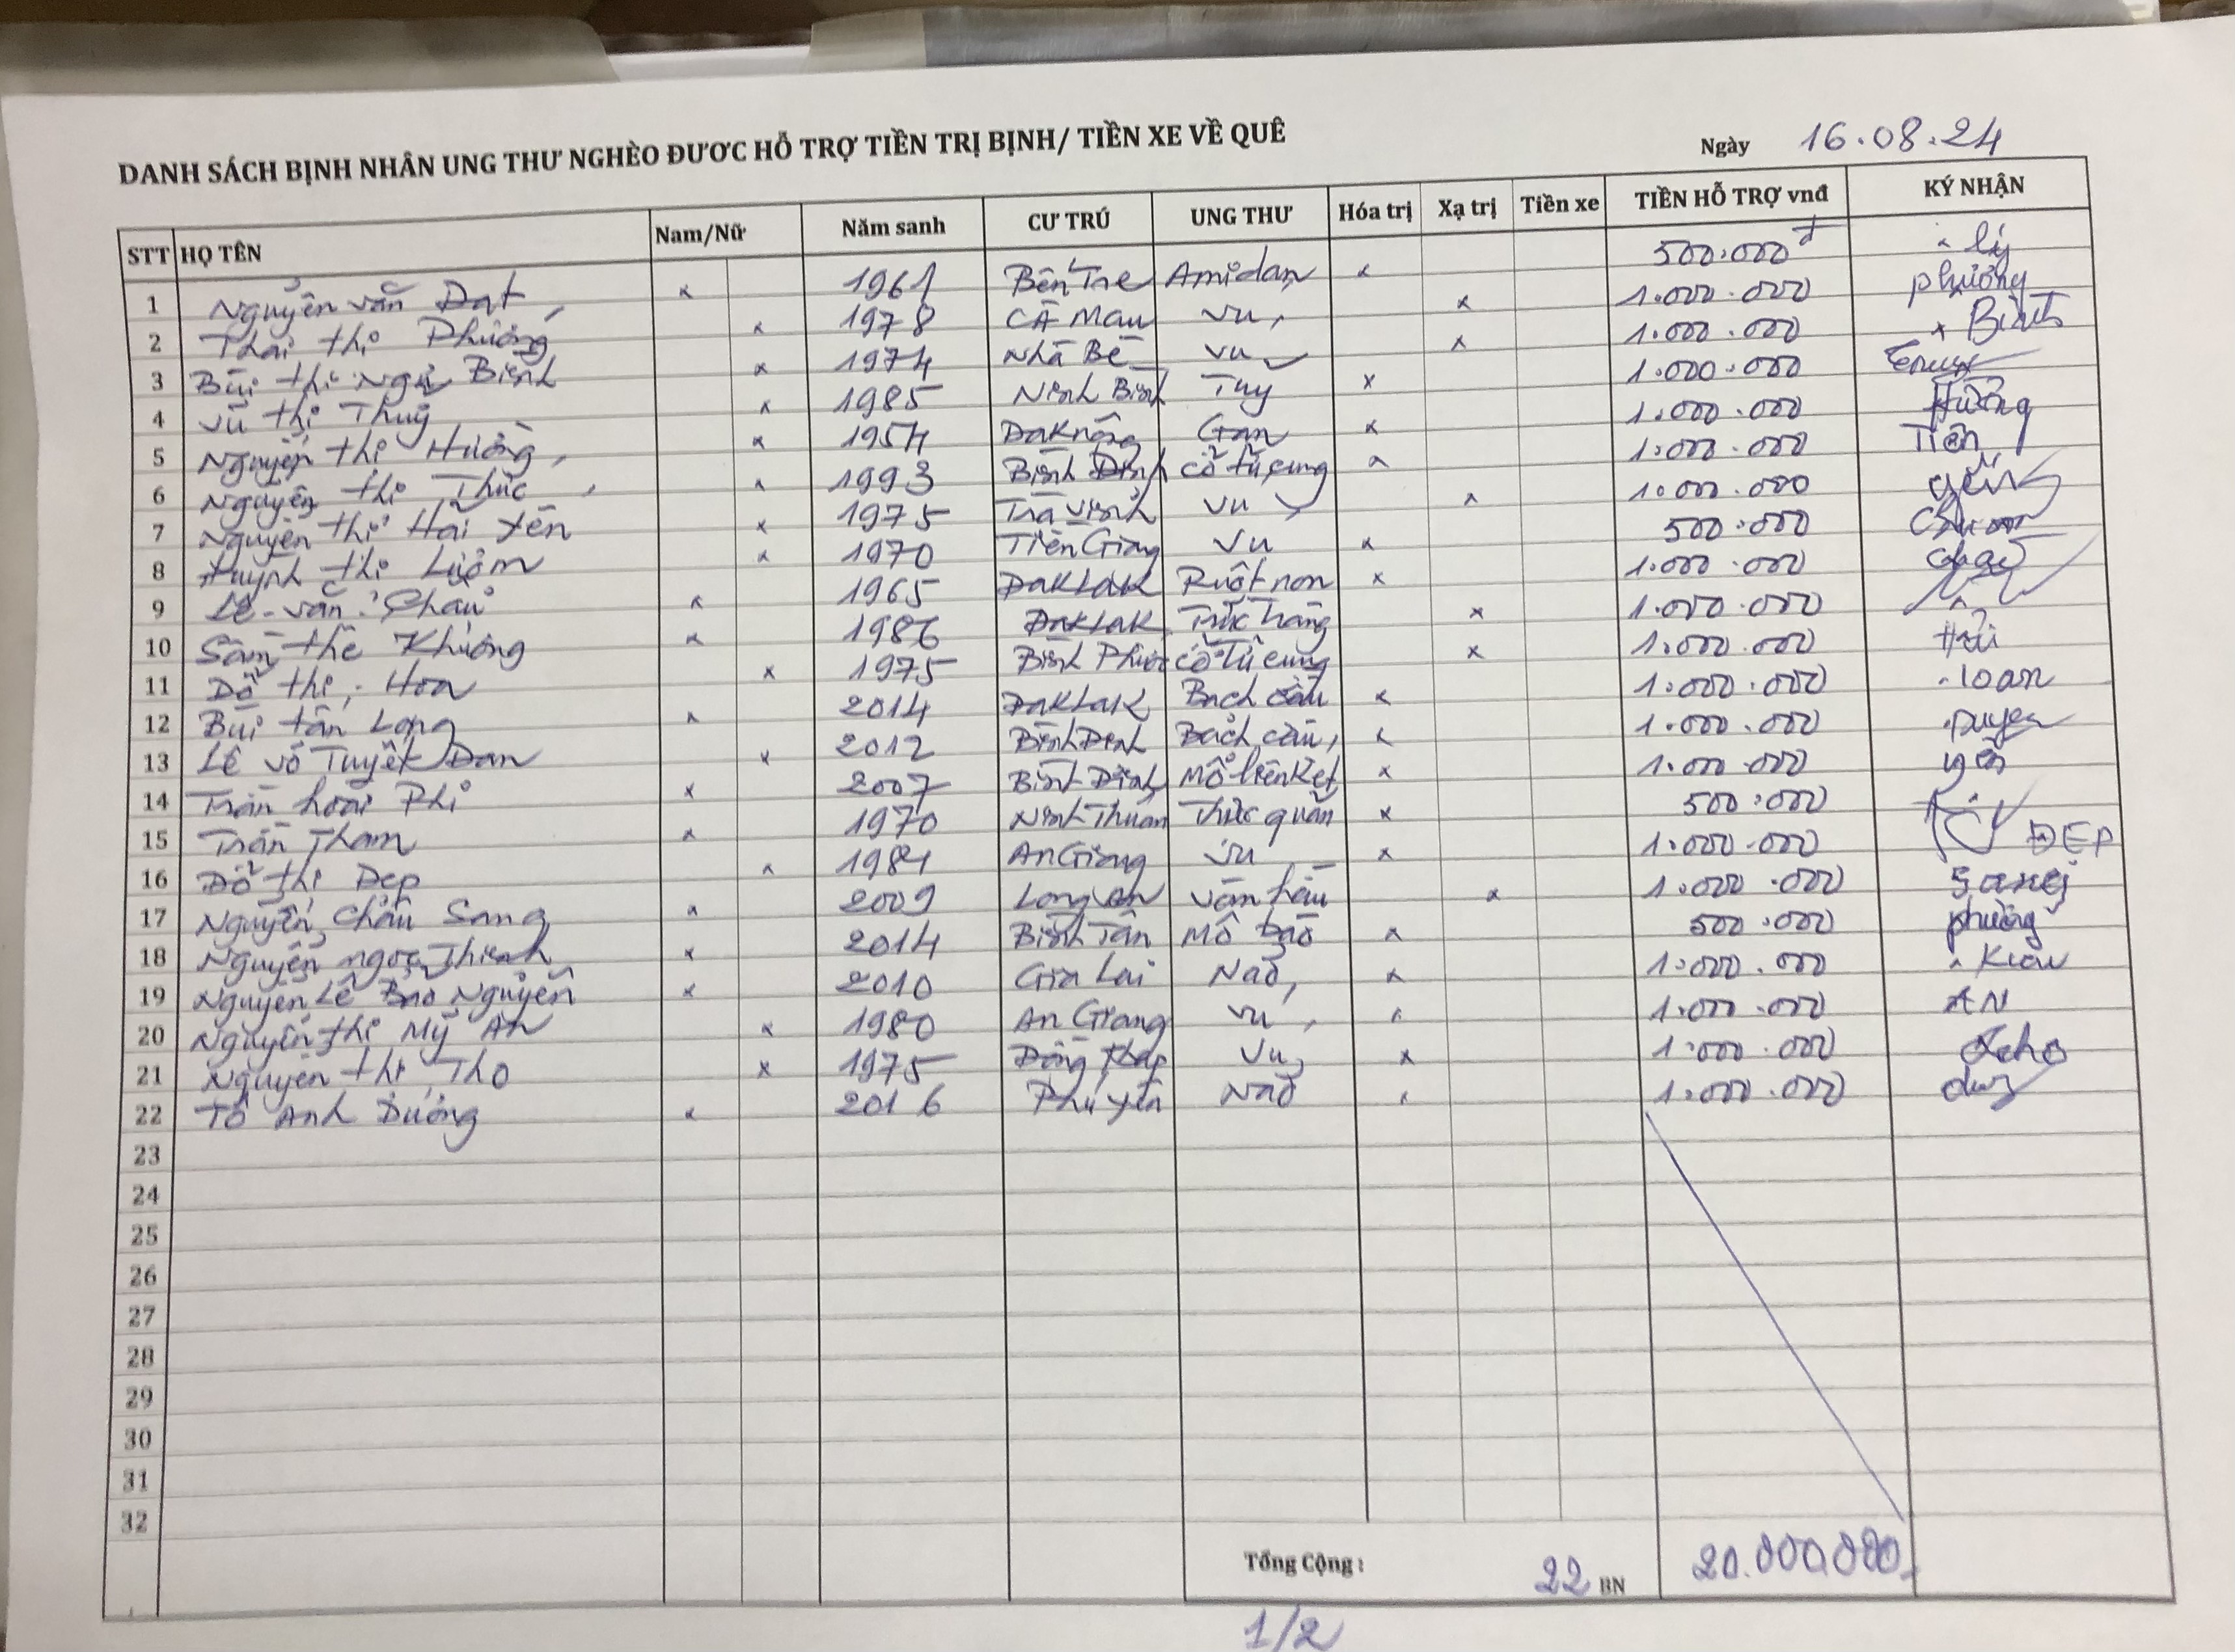 DANH SÁCH BỊNH NHÂN UNG THƯ NGHÈO ĐƯƠC HỖ TRỢ TIỀN TRỊ BỊNH/ TIỀN XE VỀ QUÊ Ngày 16.08.24
STT HỌ TÊN Nam/Nữ Năm sanh CƯ TRÚ UNG THƯ Hóa trị Xạ trị Tiền xe TIỀN HỖ TRỢ vnđ KÝ NHẬN
1 Nguyễn văn Đạt x 1961 Bến Tre Amidan x 500.000đ lý
2 Thái thị Phương x 1978 CÀ Mau Vú x 1.000.000 phương
3 Bùi thị Ngự Bình x 1974 Nhà Bè Vú x 1.000.000 x Bình
4 Vũ thị Thuỷ x 1985 Ninh Bình Tuỵ x 1.000.000
5 Nguyễn thị Hường x 1954 Đaknông Gan x 1.000.000 Hường
6 Nguyễn thị Thức x 1993 Bình Định cổ tử cung x 1.000.000 Tiên
7 Nguyễn thị Hải Yến x 1975 Trà Vinh Vú x 1.000.000 yến
8 Huỳnh thị Lượm x 1970 Tiền Giang Vú x 500.000
9 Lê văn Chẩu x 1965 ĐakLak Ruột non x 1.000.000
10 Sầm thế Khương x 1986 ĐakLak Trực Tràng x 1.000.000
11 Đỗ thị Hoa x 1975 Bình Phước cổ Tử cung x 1.000.000 Hải
12 Bùi tấn Long x 2014 ĐakLak Bạch cầu x 1.000.000 loan
13 Lê võ Tuyết Đan x 2012 Bình Định Bạch cầu x 1.000.000
14 Trần hoài Phi x 2007 Bình Định Mô liên Kết x 1.000.000 yến
15 Trần Tham x 1970 Ninh Thuận Thực quản x 500.000
16 Đỗ thị Đẹp x 1984 An Giang Vú x 1.000.000 ĐẸP
17 Nguyễn Châu Sang x 2009 Long An Vòm hầu x 1.000.000 Sang
18 Nguyễn ngọc Thịnh x 2014 Bình Tân Mô bào x 500.000 phường
19 Nguyễn Lê Bảo Nguyên x 2010 Gia Lai Não x 1.000.000 Kiều
20 Nguyễn thị Mỹ An x 1980 An Giang Vú x 1.000.000 AN
21 Nguyễn thị Thơ x 1975 Đồng tháp Vú x 1.000.000 Thơ
22 Tô Anh Dương x 2016 Phú yên Não x 1.000.000
23
24
25
26
27
28
29
30
31
32
Tổng Cộng : 22 BN 20.000.000
1/2